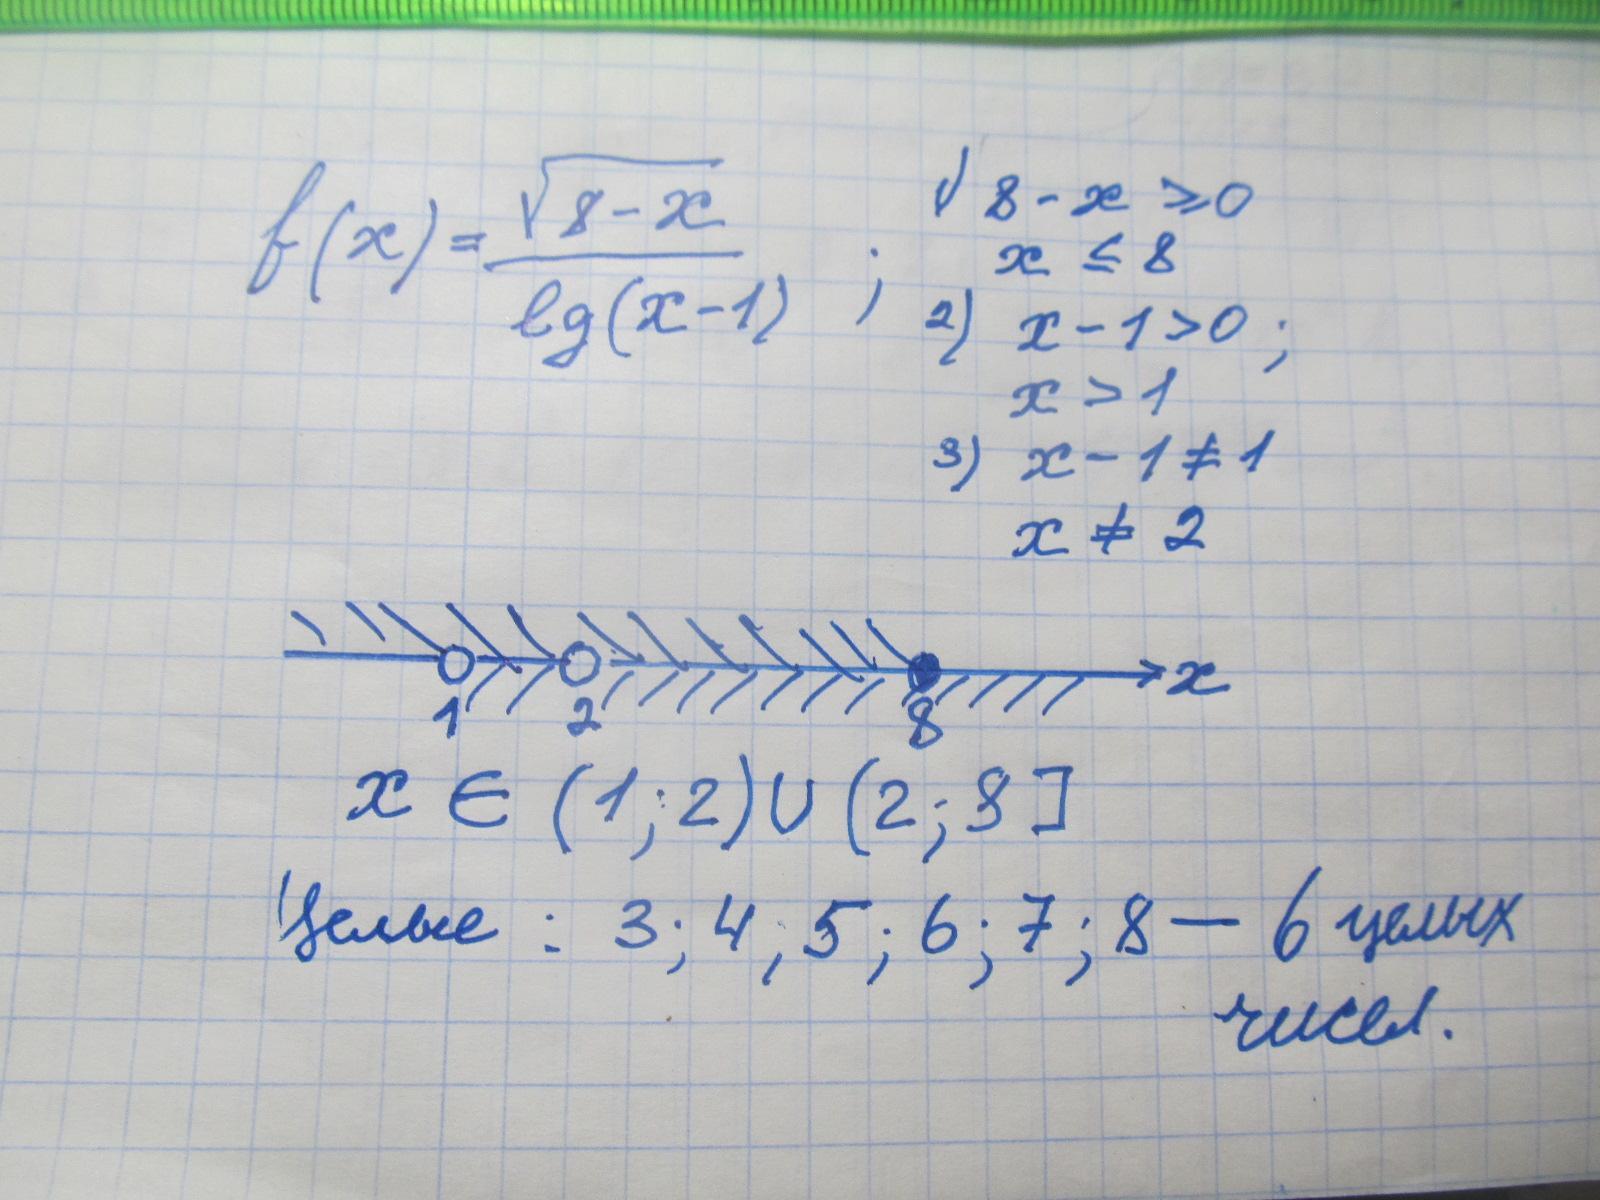 f(x) = √(8-x) / lg(x-1) ;
1) 8-x ≥ 0
x ≤ 8
2) x-1>0 ;
x > 1
3) x-1≠1
x ≠ 2
1 2 8 x
x ∈ (1;2)∪(2;8]
Целые : 3; 4; 5; 6; 7; 8 — 6 целых
чисел.